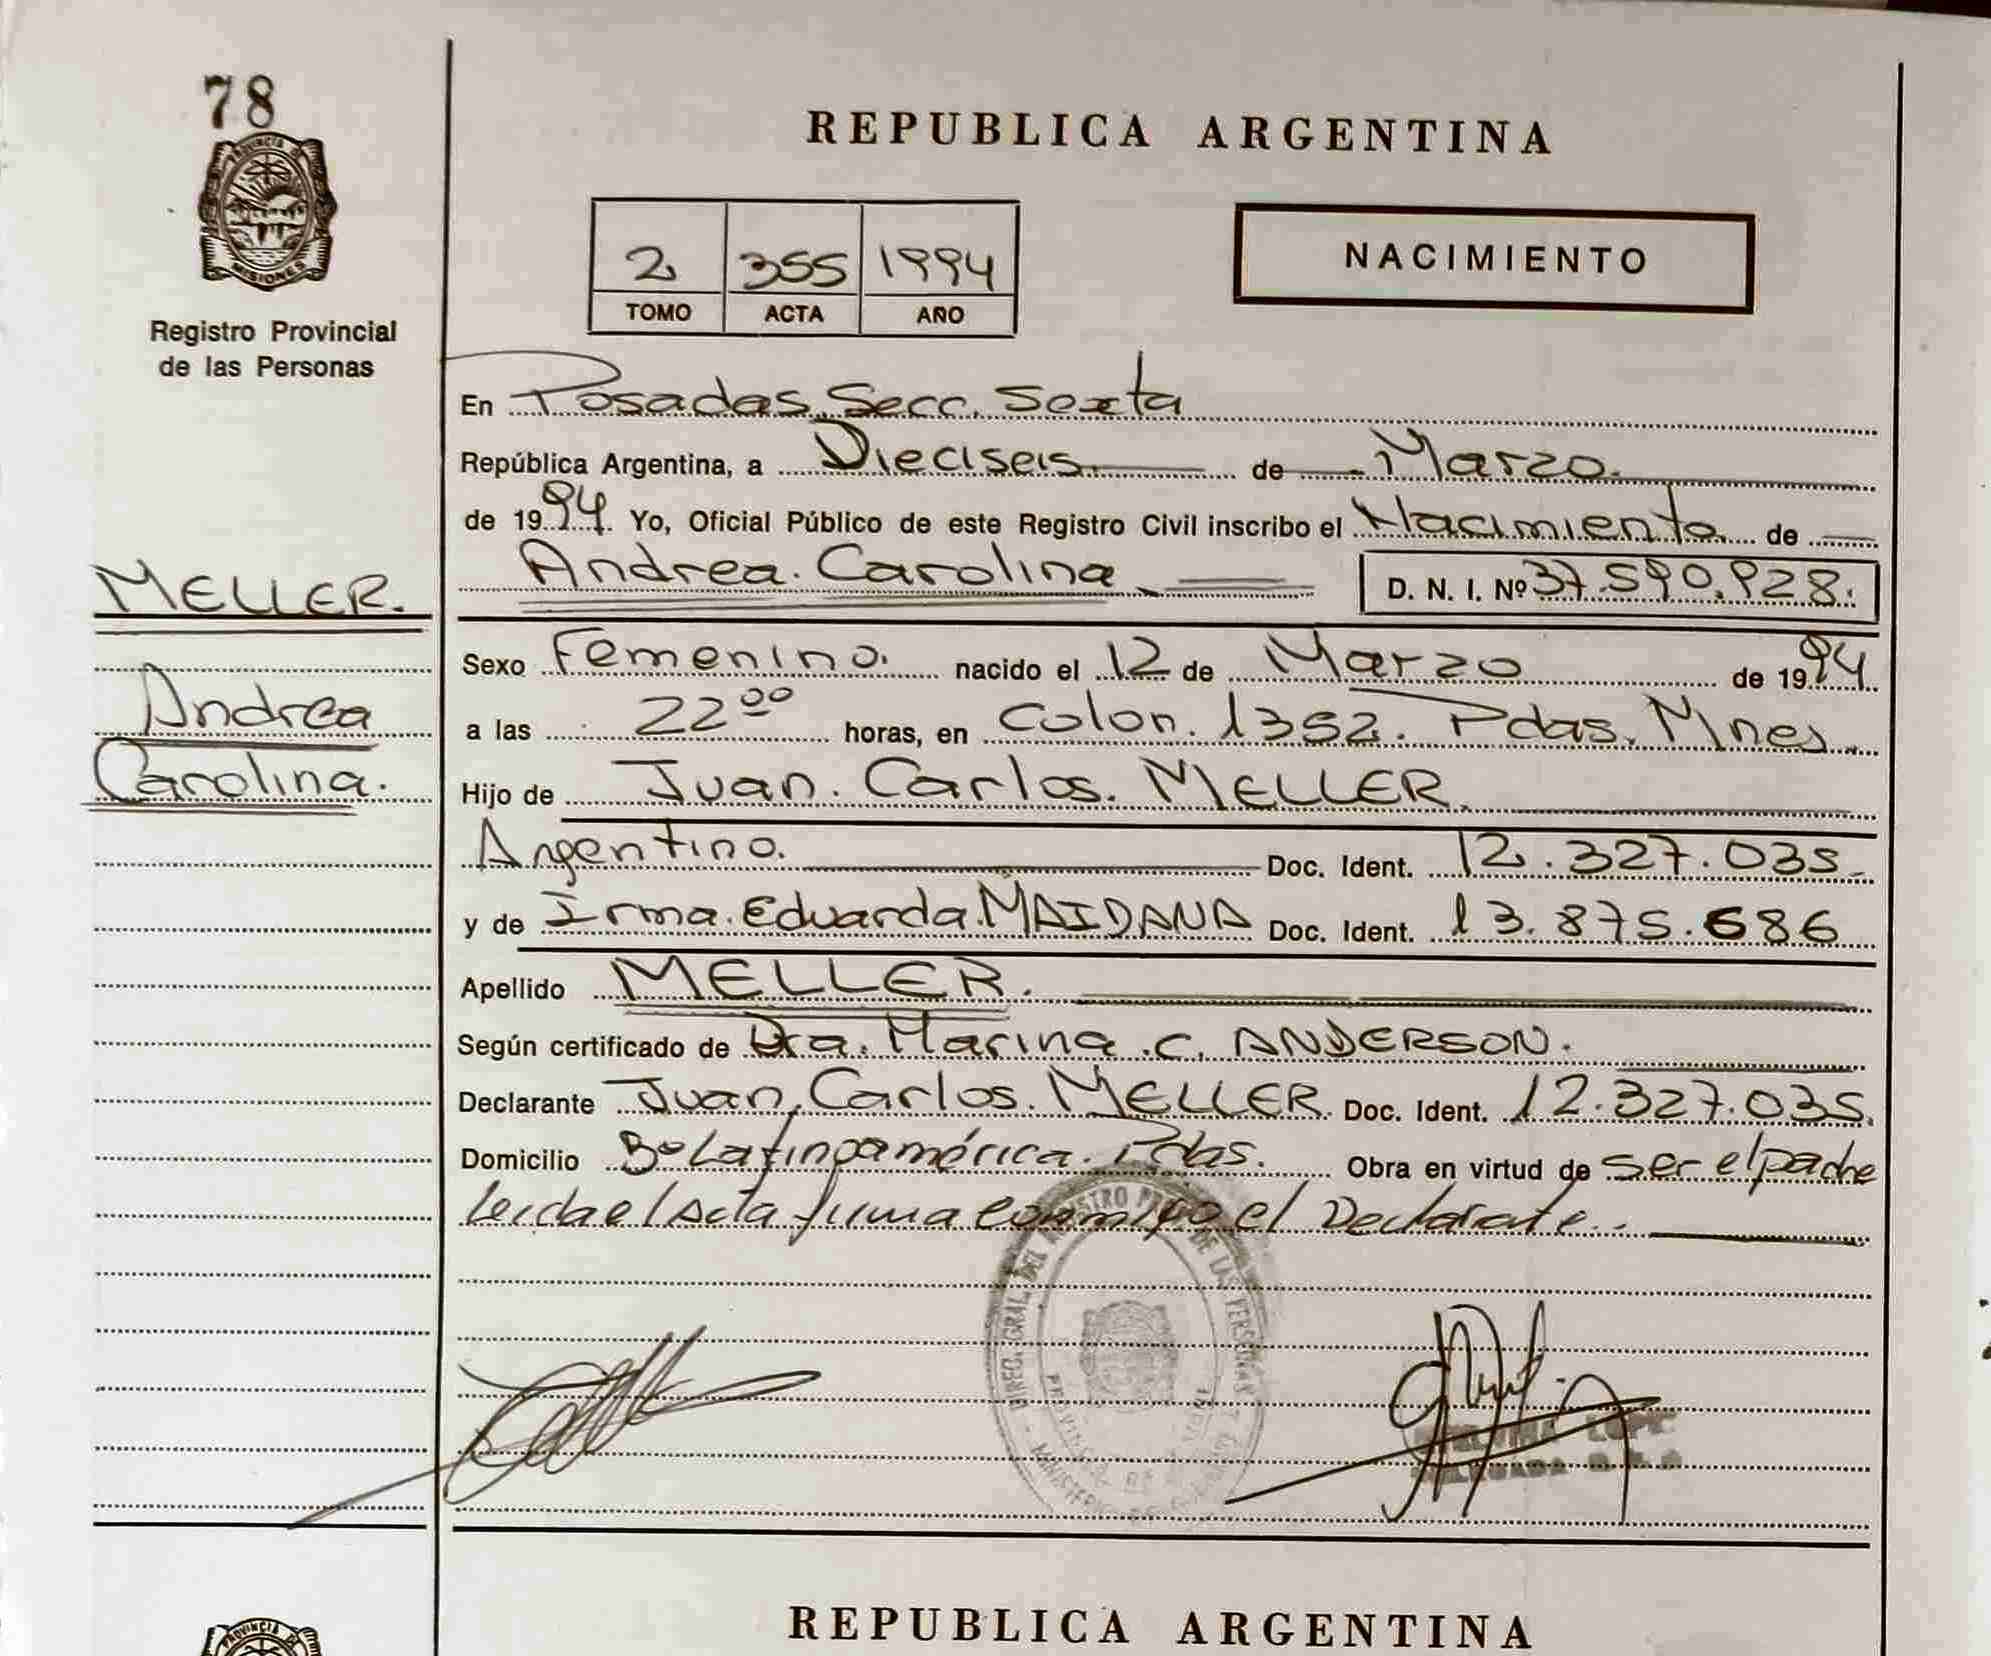 78
PROVINCIA DE
MISIONES
Registro Provincial
de las Personas
MELLER.
Andrea
Carolina.
REPUBLICA ARGENTINA
2 355 1994
TOMO ACTA AÑO
NACIMIENTO
En Posadas, Secc. Sexta
República Argentina, a Dieciseis de Marzo.
de 1994. Yo, Oficial Público de este Registro Civil inscribo el Nacimiento de
Andrea. Carolina D. N. I. Nº 37.590.928.
Sexo Femenino. nacido el 12 de Marzo de 1994
a las 22⁰⁰ horas, en Colon. 1352. Pdas. Mnes
Hijo de Juan. Carlos. MELLER.
Argentino. Doc. Ident. 12.327.035.
y de Irma. Eduarda. MAIDANA Doc. Ident. 13.875.686
Apellido MELLER.
Según certificado de Dra. Marina. C. ANDERSON.
Declarante Juan, Carlos. MELLER. Doc. Ident. 12.327.035.
Domicilio Bº Latinoamérica. Pdas. Obra en virtud de ser el padre
Leida el Acta firma conmigo el Declarante.
DIREC. GRAL. DEL REGISTRO DE LAS PERSONAS
REPUBLICA ARGENTINA
PROVINCIA DE